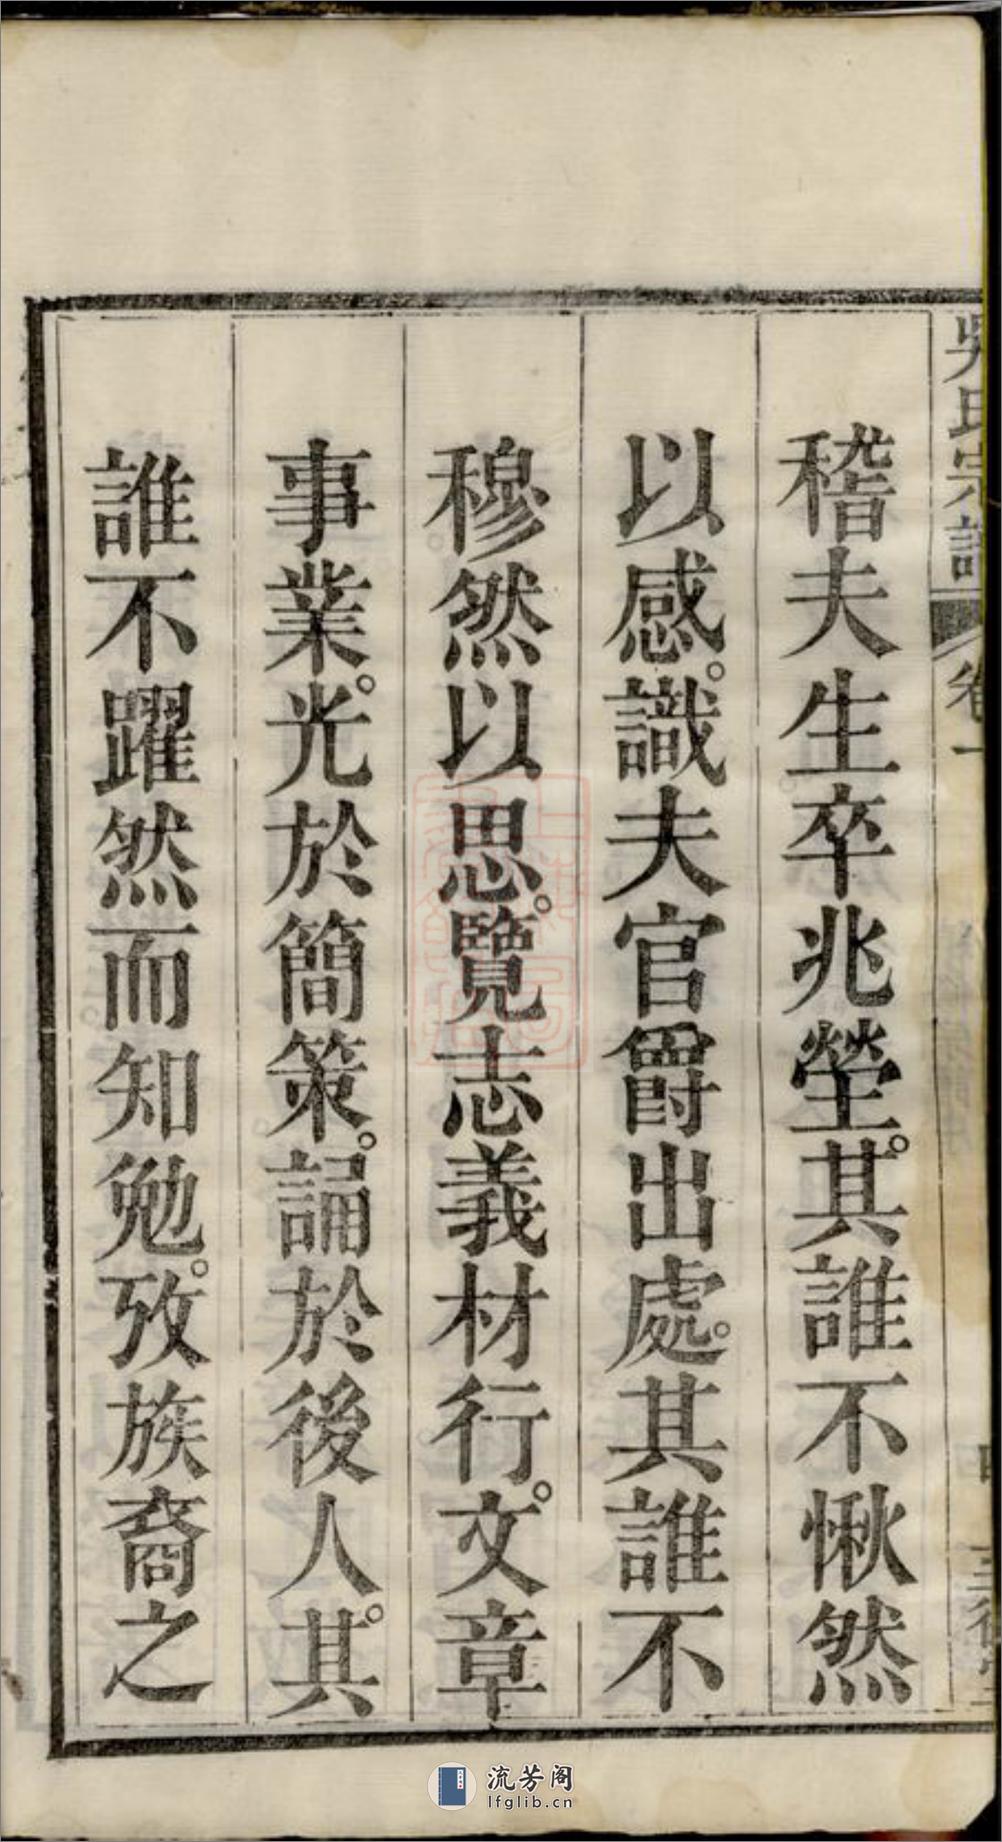 吳氏宗譜
卷一
稽夫生卒兆塋。其誰不愀然
以感。識夫官爵出處。其誰不
穆然以思。覽志義材行。文章
事業。光於簡策。誦於後人。其
誰不躍然而知勉。攷族裔之
流芳阁
lfglib.cn